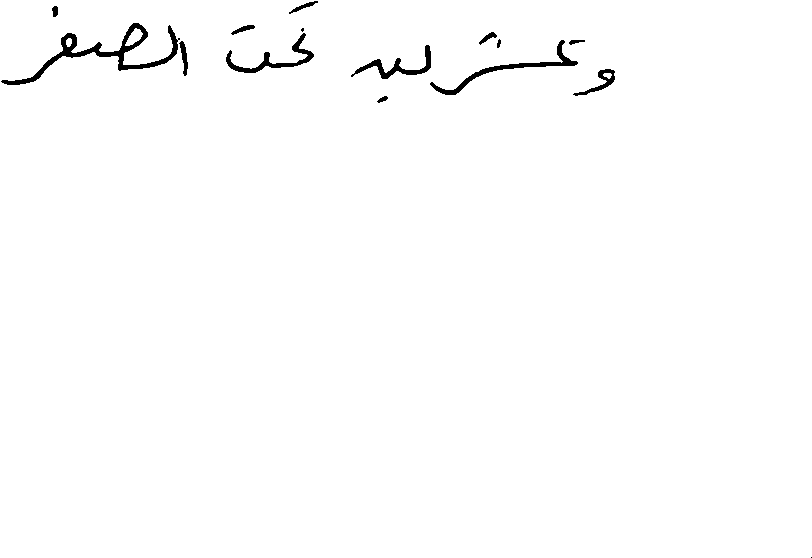 وعشرين تحت الصفر